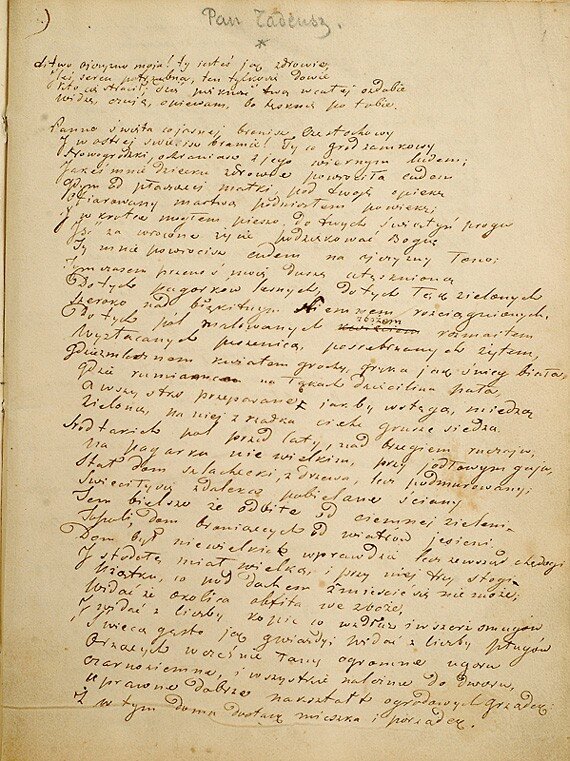 Pan Tadeusz.
Litwo ojczyzno moja! ty jesteś jak zdrowie,
Ile cię cenić potrzebna, ten tylko się dowie
Kto cię stracił. Dziś piękność twą w całej ozdobie
Widzę, czuję, opiewam, bo tęsknię po tobie.
Panno święta co jasnej bronisz Częstochowy
I w ostrej świecisz bramie! Ty co gród zamkowy
Nowogródzki, ochraniasz z jego wiernym ludem;
Jakeś mnie dziecko zdrowiu powróciła cudem
Gdym od płaczącej matki, pod twoję opiekę
Ofiarowany martwą podniosłem powiekę,
I w krótce mogłem pieszo do twych świątyń progu
Iść za wrócone życie podziękować Bogu
Ty mnie powrócisz cudem na ojczyzny łono;
Tymczasem przenoś moją duszę utęsknioną
Do tych pagórków leśnych, do tych łąk zielonych
Szeroko nad błękitnym Niemnem rościągnionych.
Do tych pól malowanych zbożem rozmaitem
Wyzłacanych pszenicą, posrebrzanych żytem,
Gdzie kwiatem grochy, gryka jak śnieg biała
Gdzie rumiancem na łąkach dzięcielina pała,
A wszystko przepasane jakby wstęgą, miedzą
Zieloną, na niej z rzadka ciche grusze siedzą.
Nad takich pól przed laty, nad brzegiem ruczaju,
Na pagórku nie wielkim, przy gaju,
Stał dom szlachecki, z drzewa, lecz podmurowany;
Świeciły się zdaleka pobielane ściany
Tem bielsze że odbite od ciemnej zieleni
Topoli, broniących od wiatrów jesieni
Dom był niewielki wprawdzie lecz zewsząd chędogi
I stodołę miał wielką, i przy niej trzy stogi
Użątku, co pod dachem zmieścić się nie może;
Widać że okolica obfita we zboże,
I widać z liczby kopic co wzdłuż i wszerz smugów
Świecą gęsto jak gwiazdy; widać z liczby pługów
Orzących wcześnie łany ogromne ugoru
Czarnoziemne, i wszystkie należne do dworu,
Uprawne dobrze nakształt ogrodowych grządek:
Ż w tym domu dostatek mieszka i porządek.